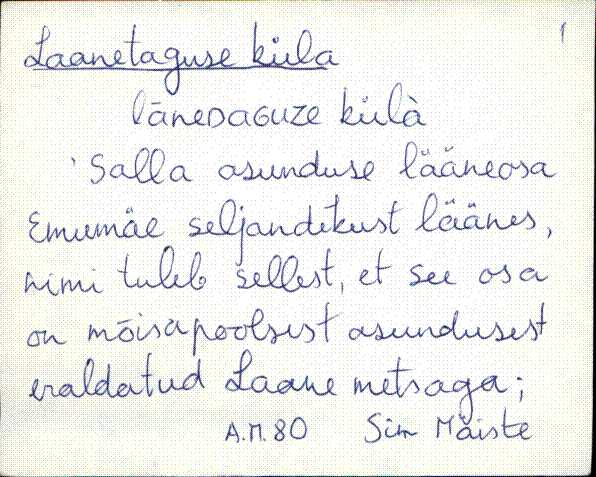 1
Laanetaguse küla
lāneDaGuZE külà
'Salla asunduse lääneosa
Emumäe seljandikust läänes,
nimi tuleb sellest, et see osa
on mõisapoolsest asundusest
eraldatud Laane metsaga;
A.M. 80 Siim Mäiste